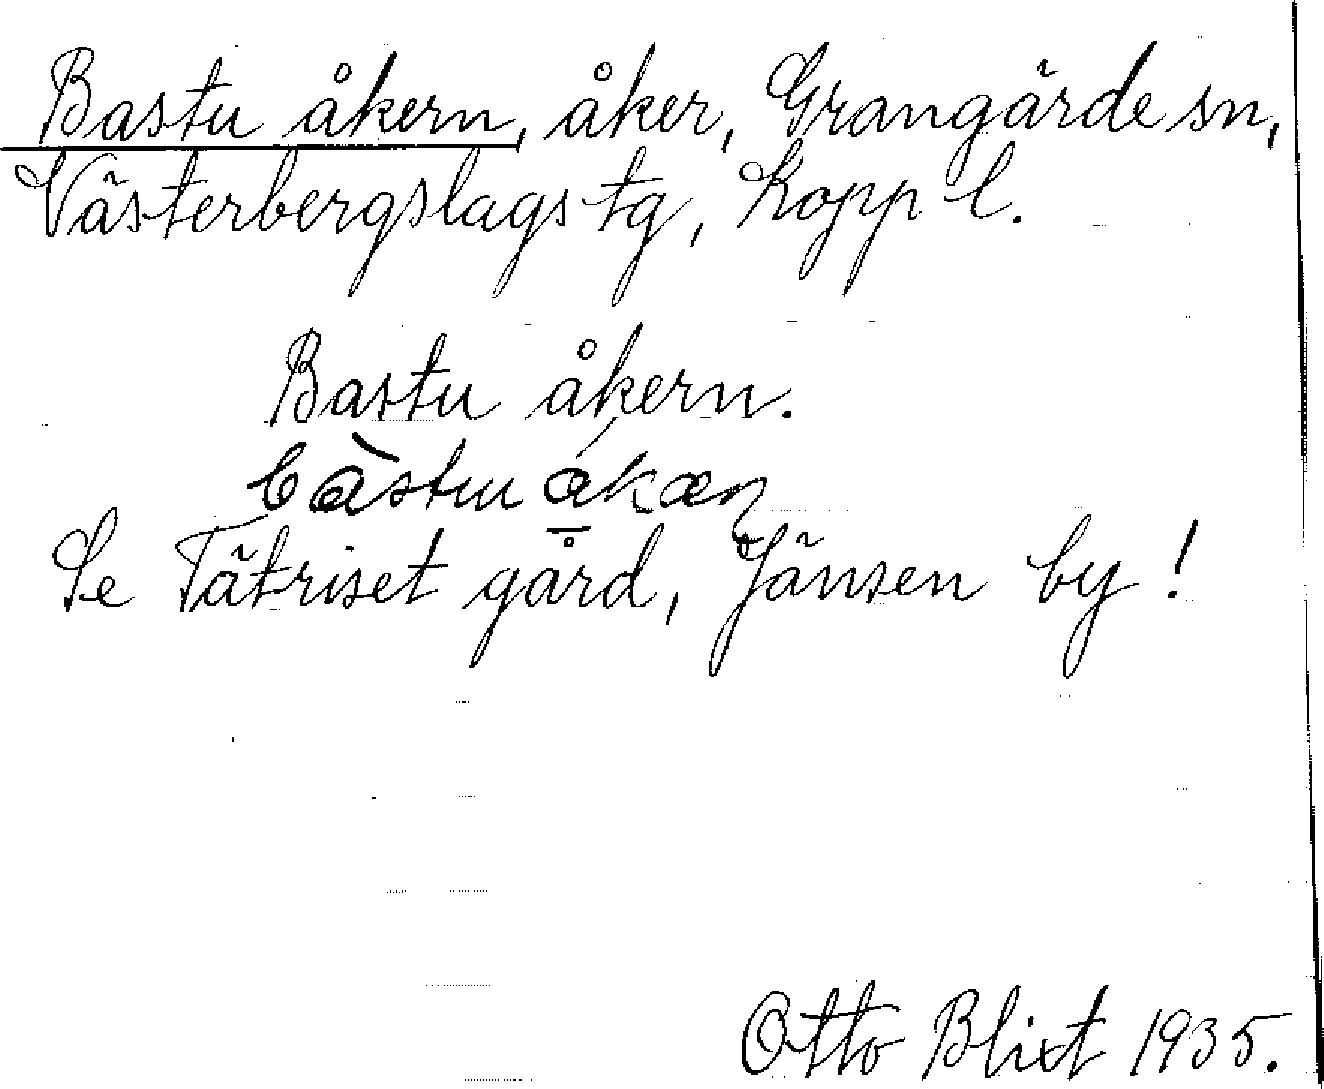 Bastu åkern, åker, Grangärde sn,
Västerbergslags tg, Kopp l.
Bastu åkern.
Se Tätriset gård, Jänsen by!
Otto Blixt 1935.